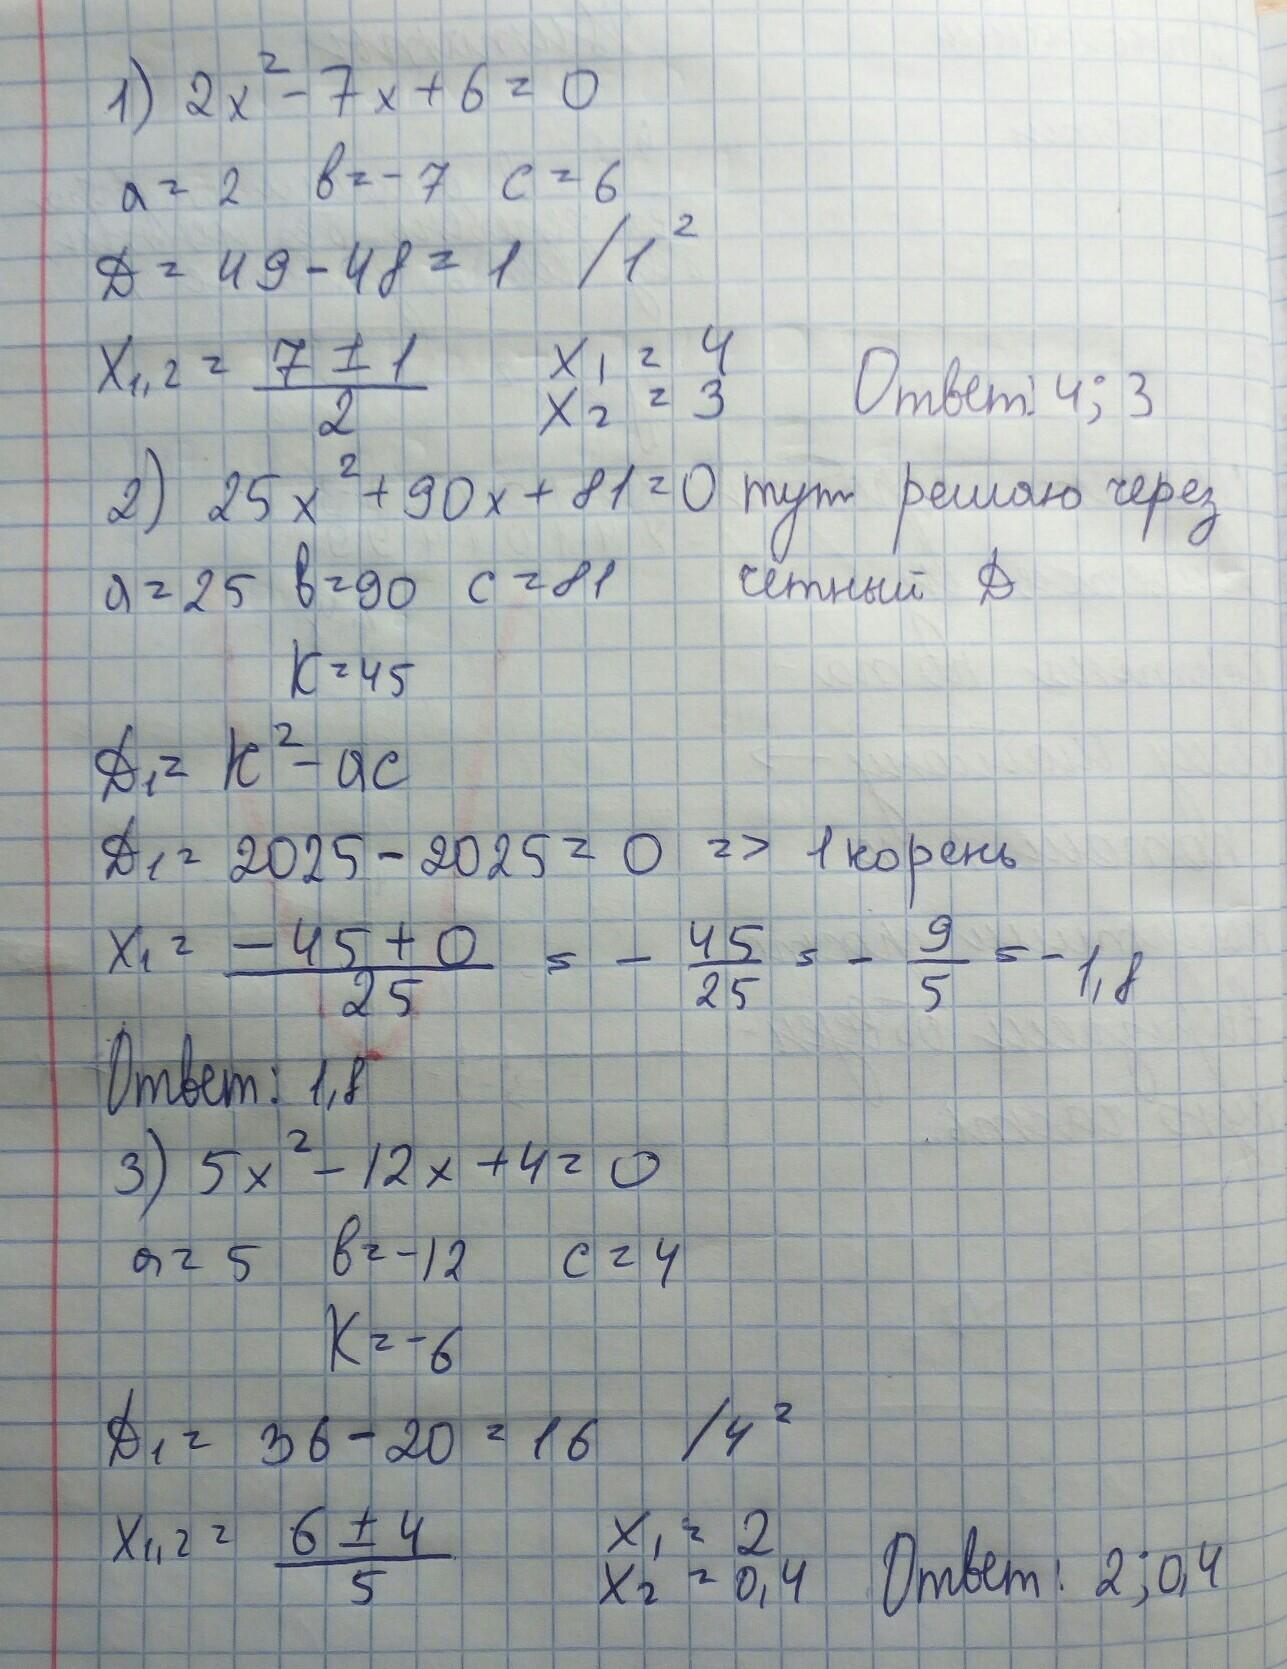 1) 2x² - 7x + 6 = 0
a = 2 в = -7 c = 6
Д = 49 - 48 = 1 /1²
X₁,₂ = (7 ± 1)/2 X₁ = 4
X₂ = 3 Ответ: 4; 3
2) 25x² + 90x + 81 = 0 тут решаю через
a = 25 в = 90 c = 81 четный Д
K = 45
Д₁ = k² - ac
Д₁ = 2025 - 2025 = 0 => 1 корень
X₁ = (-45 + 0)/25 = - 45/25 = - 9/5 = -1,8
Ответ: 1,8
3) 5x² - 12x + 4 = 0
a = 5 в = -12 c = 4
K = -6
Д₁ = 36 - 20 = 16 /4²
X₁,₂ = (6 ± 4)/5 X₁ = 2
X₂ = 0,4 Ответ: 2; 0,4